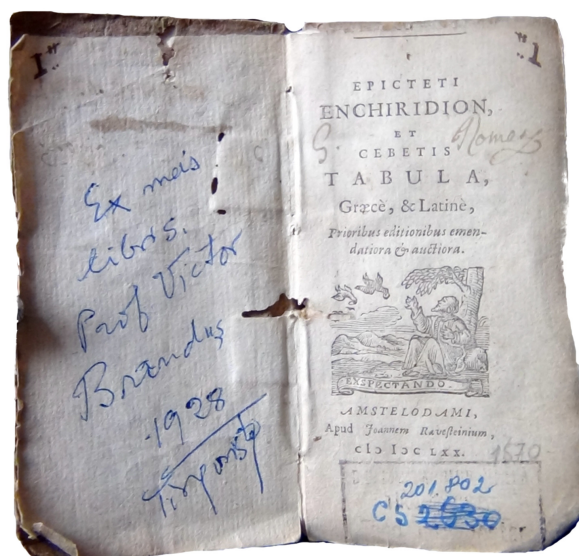 Ex meis
libris.
Prof Victor
Brandus
1928
EPICTETI
ENCHIRIDION,
ET
CEBETIS
TABULA,
Græcè, & Latinè,
Prioribus editionibus emen-
datiora & auctiora.
EXSPECTANDO.
AMSTELODAMI,
Apud Joannem Ravesteinium,
cIɔ Iɔc LXX.
1570
201.802
CS